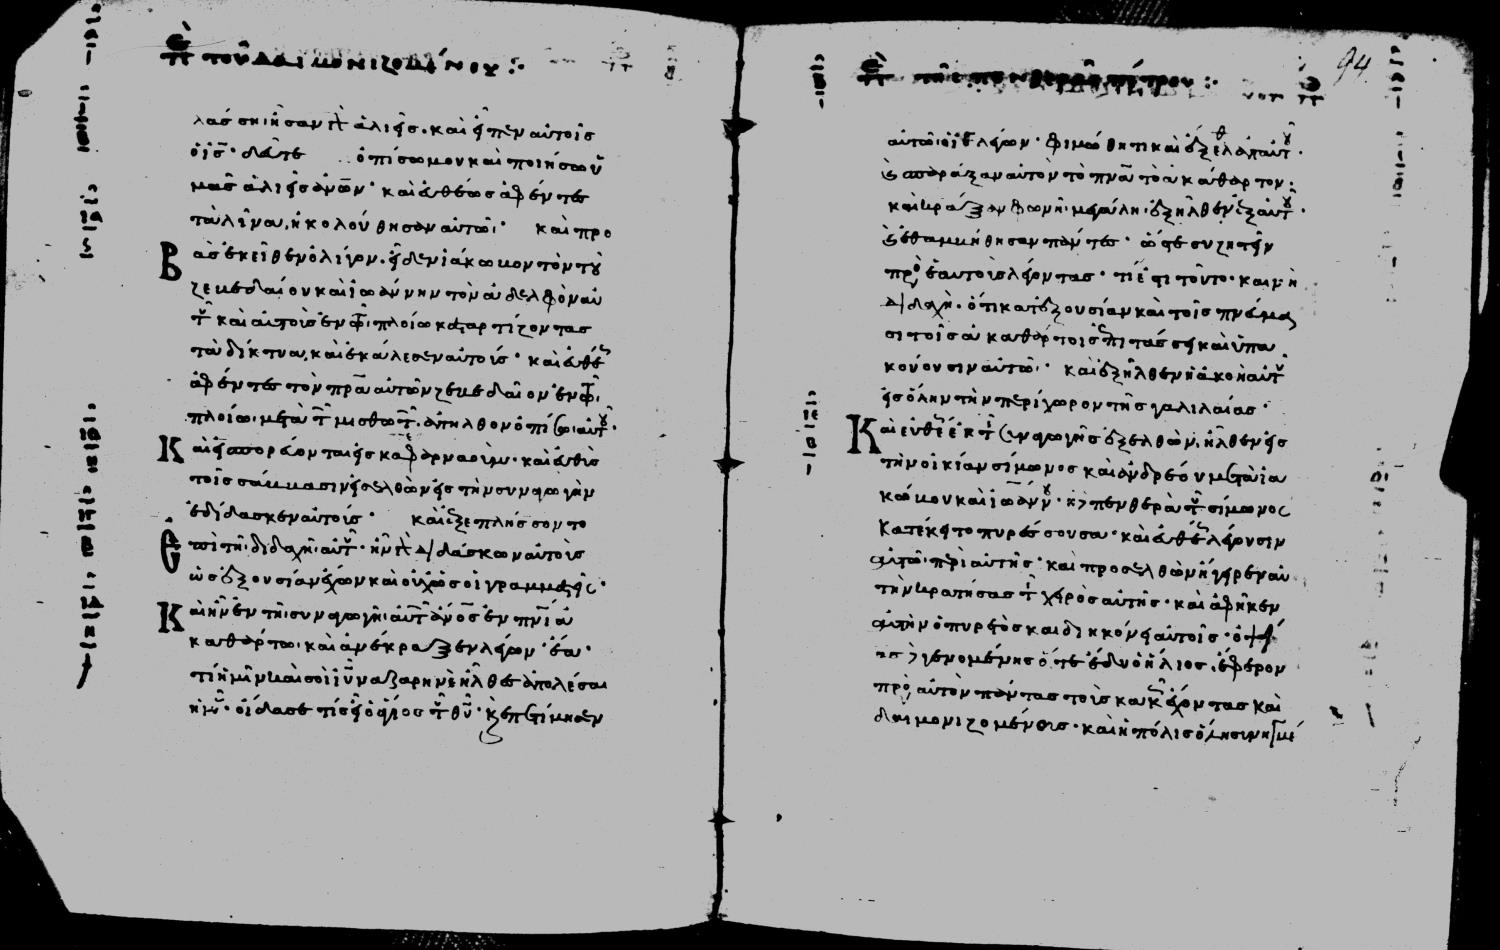 τοῦ δαιμονιζομένου :·
λάσσῃ· ἦσαν γὰρ ἁλιεῖς. καὶ εἶπεν αὐτοῖς
ὁ ἰς̅· δεῦτε ὀπίσω μου καὶ ποιήσω ὑ
μᾶς ἁλιεῖς ἀνων̅· καὶ εὐθέως ἀφέντες
τὰ λῖνα, ἠκολούθησαν αὐτῶ· καὶ προ
βὰς ἐκεῖθεν ὀλίγον. εἶδεν ἰάκωβον τὸν τοῦ
ζεβεδαίου καὶ ἰωάννην τὸν ἀδελφὸν αὐ
τοῦ καὶ αὐτοὺς ἐν τῶ πλοίω καταρτίζοντας
τὰ δίκτυα, καὶ ἐκάλεσεν αὐτούς· καὶ εὐθέως
ἀφέντες τὸν πρα̅ αὐτῶν ζεβεδαῖον ἐν τῶ
πλοίω μετὰ τῶν μισθωτῶν ἀπῆλθον ὀπίσω αὐτοῦ·
Καὶ εἰσπορεύονται εἰς καφαρναούμ· καὶ εὐθὺς
τοῖς σάββασιν εἰσελθὼν εἰς τὴν συναγωγὴν
ἐδίδασκεν αὐτούς· καὶ ἐξεπλήσσοντο
ἐπὶ τῇ διδαχῇ αὐτοῦ· ἦν γὰρ διδάσκων αὐτοὺς
ὡς ἐξουσίαν ἔχων καὶ οὐχ ὡς οἱ γραμματεῖς·
Καὶ ἦν ἐν τῇ συναγωγῇ αὐτῶν ανος̅ ἐν πνι̅ ἀ
καθάρτω· καὶ ἀνέκραξεν λέγων· ἔα·
τί ἡμῖν καὶ σοὶ ιυ̅ ναζαρηνὲ ἦλθες ἀπολέσαι
ἡμᾶς· οἶδά σε τίς εἶ ὁ ἅγιος τοῦ θυ̅· καὶ ἐπετίμησεν
τῆς πενθερᾶς πέτρου :·
94
αὐτῶ ὁ ις̅ λέγων· φιμώθητι καὶ ἔξελθε ἀπ' αὐτοῦ·
καὶ σπαράξαν αὐτὸν τὸ πνα̅ τὸ ἀκάθαρτον·
καὶ κράξαν φωνῇ μεγάλῃ· ἐξῆλθεν ἐξ αὐτοῦ·
καὶ ἐθαμβήθησαν πάντες· ὥστε συζητεῖν
πρὸς ἑαυτοὺς λέγοντας· τί ἐστι τοῦτο· καινὴ
διδαχὴ. ὅτι κατ' ἐξουσίαν καὶ τοῖς πνεύμα
σι τοῖς ἀκαθάρτοις ἐπιτάσσει καὶ ὑπα
κούουσιν αὐτῶ· καὶ ἐξῆλθεν ἡ ἀκοὴ αὐτοῦ
εἰς ὅλην τὴν περίχωρον τῆς γαλιλαίας·
Καὶ εὐθέως ἐκ τῆς συναγωγῆς ἐξελθὼν, ἦλθεν εἰς
τὴν οἰκίαν σίμωνος καὶ ἀνδρέου μετὰ ἰα
κώβου καὶ ἰωάννου· ἡ δὲ πενθερὰ τοῦ σίμωνος
κατέκειτο πυρέσσουσα· καὶ εὐθέως λέγουσιν
αὐτῶ περὶ αὐτῆς· καὶ προσελθὼν ἤγειρεν αὐ
τὴν κρατήσας τῆς χειρὸς αὐτῆς· καὶ ἀφῆκεν
αὐτὴν ὁ πυρετὸς καὶ διηκόνει αὐτοῖς· ὀψί
ας δὲ γενομένης ὅτε ἔδυ ὁ ἥλιος, ἔφερον
πρὸς αὐτὸν πάντας τοὺς κακῶς ἔχοντας καὶ
δαιμονιζομένους· καὶ ἡ πόλις ὅλη